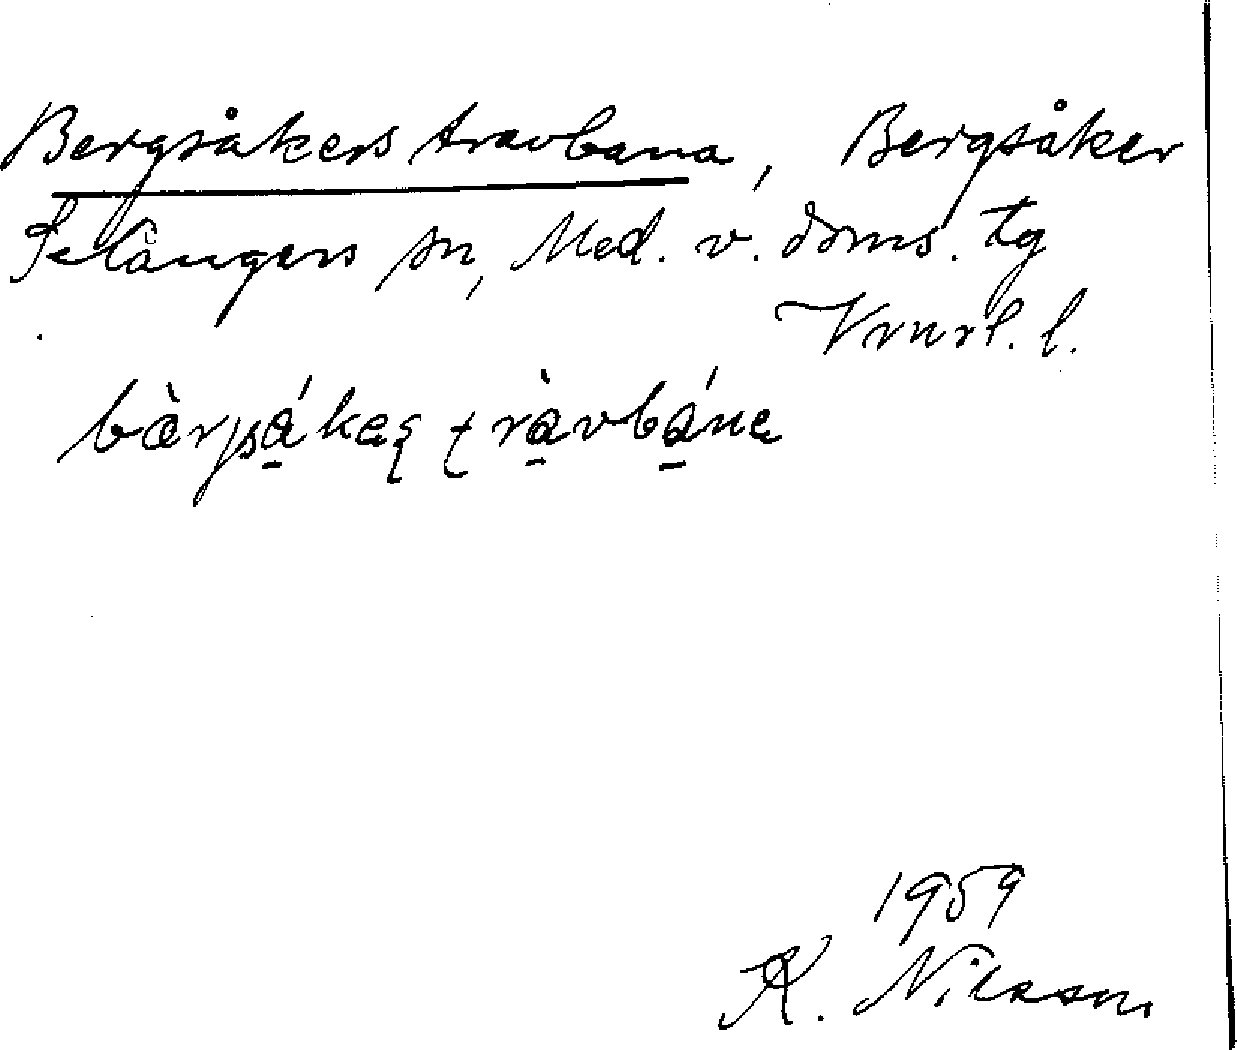 Bergsåkers travbana, Bergsåker
Selångers sn, Med. v. doms. tg
Vrnrl. l.
bæ̀rjsá̱kæş ţrà̱vbá̱na
1959
K. Nilsson